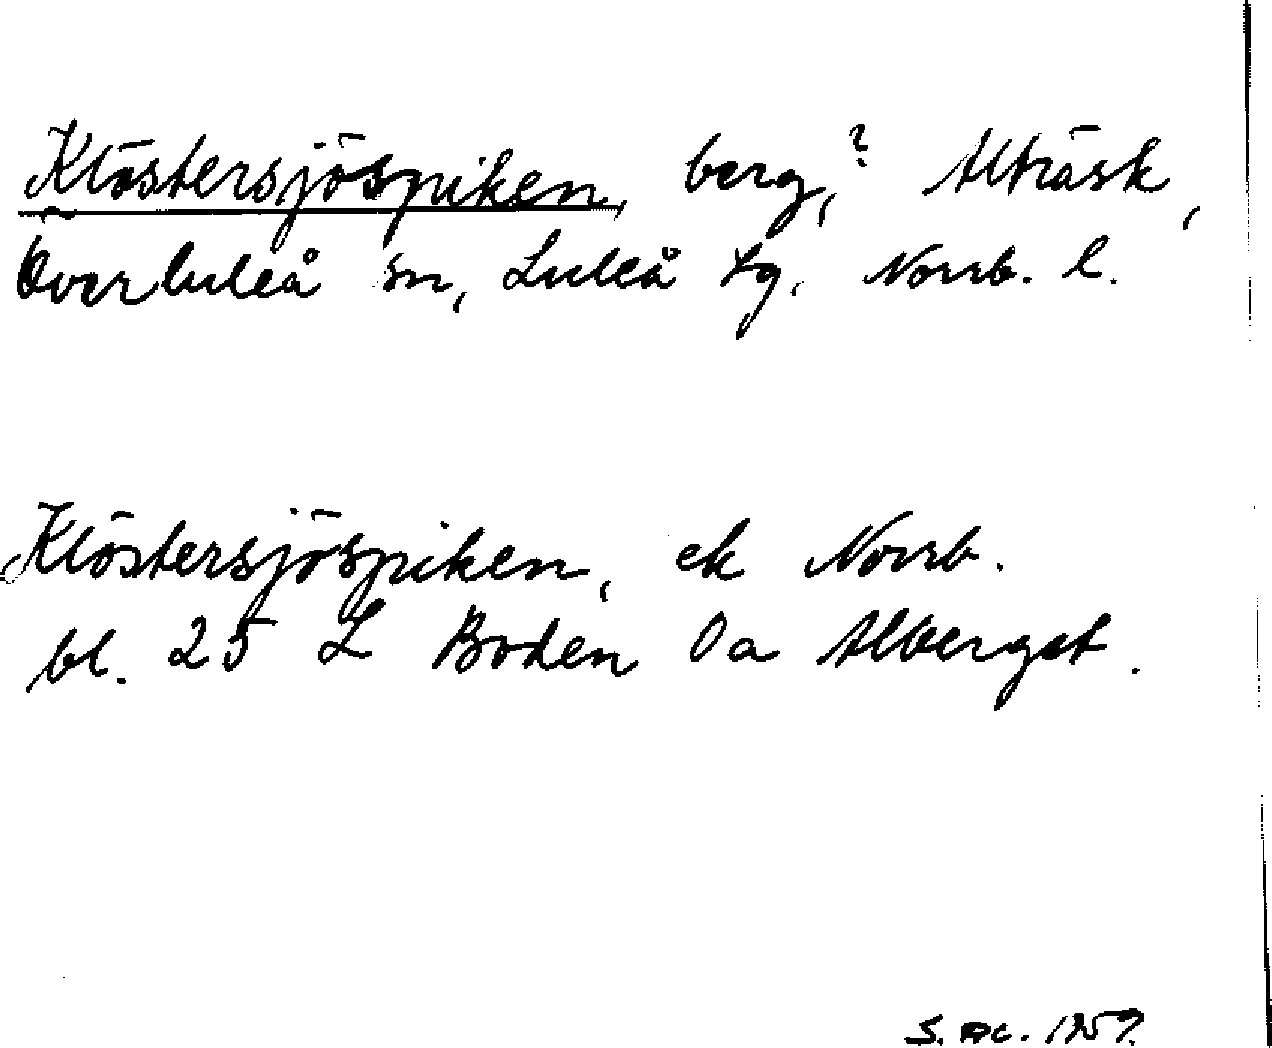 Klöstersjöspiken, berg,? Alträsk,
Överluleå sn, Luleå tg. Norrb. l.
Klöstersjöspiken, ek Norrb.
bl. 25 L Boden 0a Alberget.